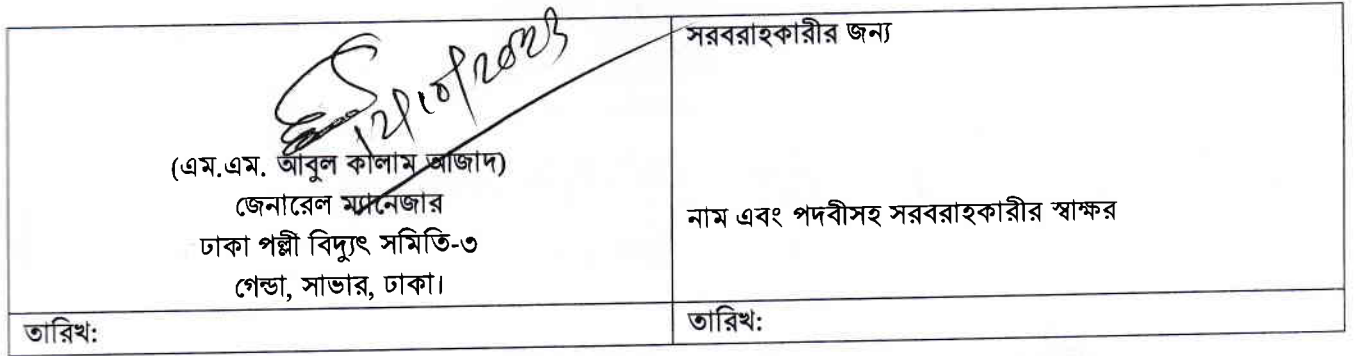 12/10/2023
(এম.এম. আবুল কালাম আজাদ)
জেনারেল ম্যানেজার
ঢাকা পল্লী বিদ্যুৎ সমিতি-৩
গেন্ডা, সাভার, ঢাকা।
তারিখ:
সরবরাহকারীর জন্য
নাম এবং পদবীসহ সরবরাহকারীর স্বাক্ষর
তারিখ: